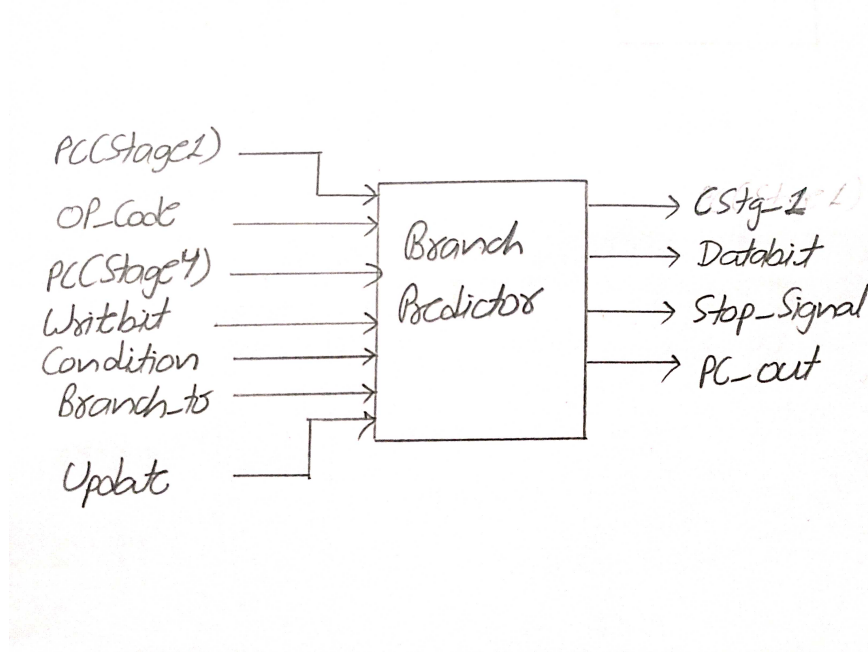 PC(Stage1)
OP_Code
PC(Stage4)
Writbit
Condition
Branch_to
Update
Branch
Predictor
CStg_1
Databit
Stop_Signal
PC_out